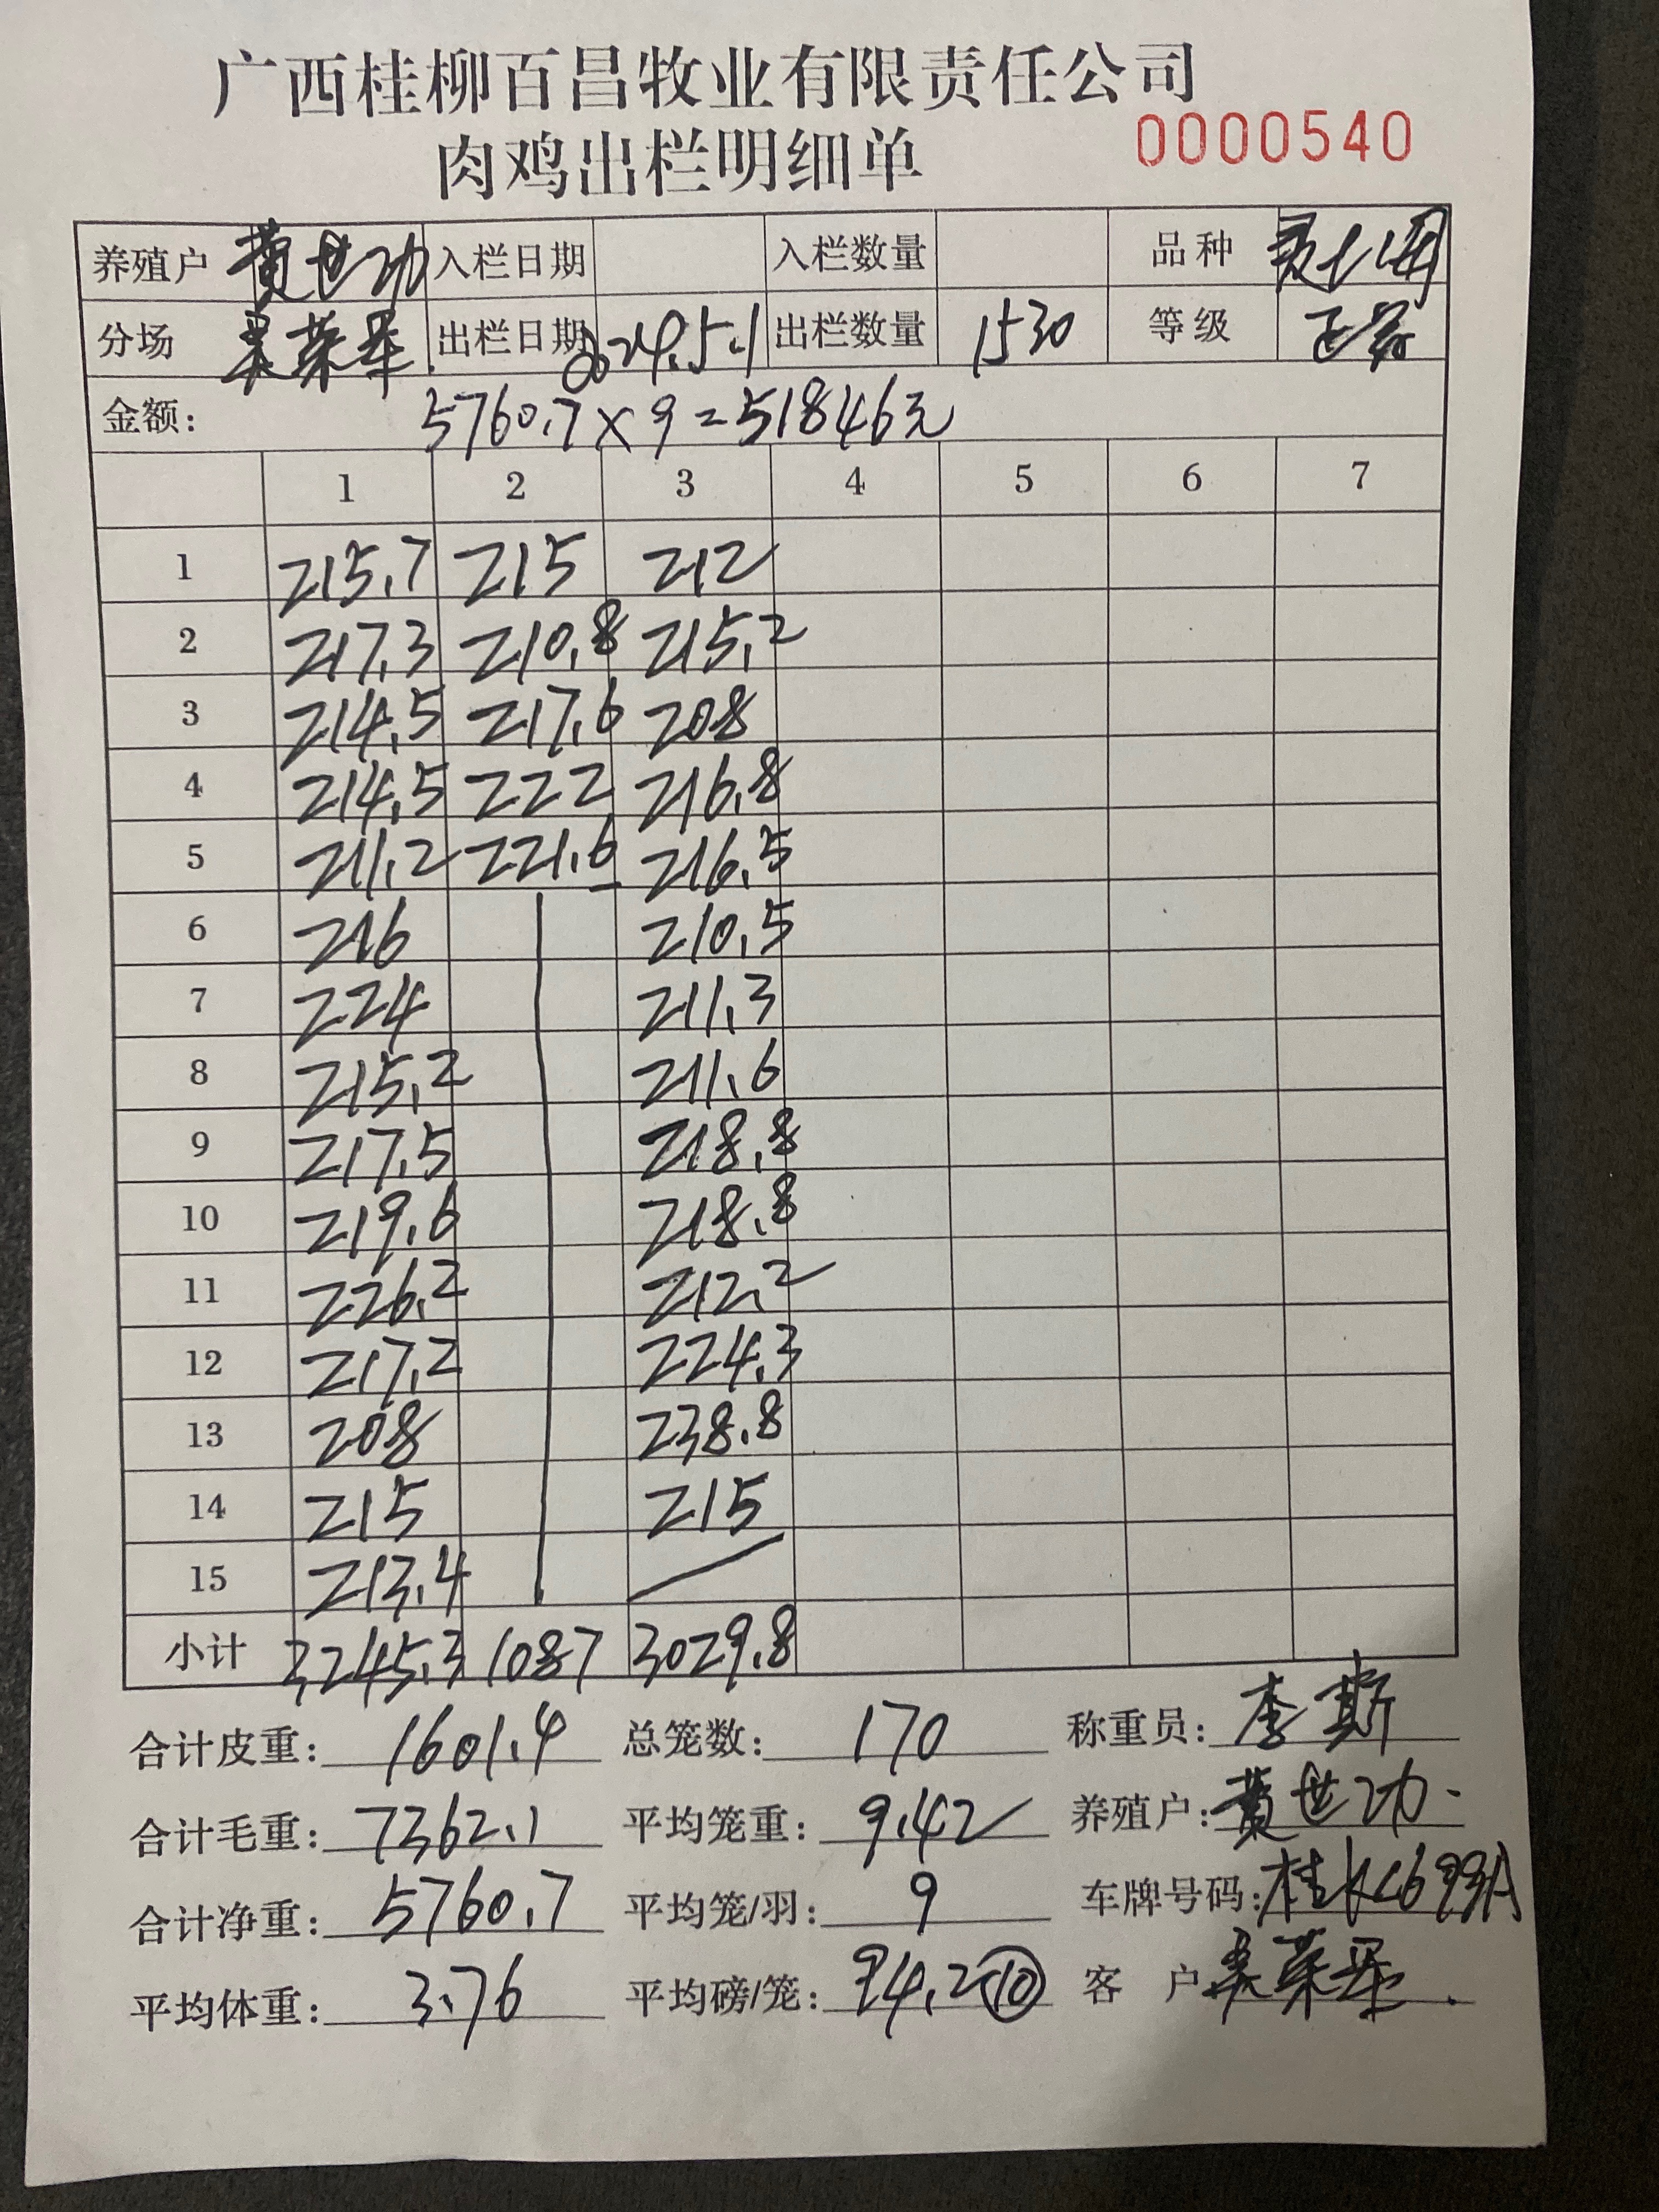 广西桂柳百昌牧业有限责任公司
肉鸡出栏明细单 0000540
养殖户 黄世功 入栏日期 入栏数量 品种
分场 出栏日期 2024.5.1 出栏数量 1530 等级 正常
金额: 5760.7×9=51846元
1 2 3 4 5 6 7
1 215.7 215 212
2 217.3 210.8 215.2
3 214.5 217.6 208
4 214.5 222 216.8
5 211.2 221.6 216.5
6 216 210.5
7 224 211.3
8 215.2 211.6
9 217.5 218.8
10 219.6 218.8
11 226.2 212.2
12 217.2 224.3
13 208 238.8
14 215 215
15 213.4
小计 3245.3 1087 3029.8
合计皮重: 1601.4 总笼数: 170 称重员: 李斯
合计毛重: 7362.1 平均笼重: 9.42 养殖户: 黄世功.
合计净重: 5760.7 平均笼/羽: 9 车牌号码:
平均体重: 3.76 平均磅/笼: 94.2⑩ 客 户